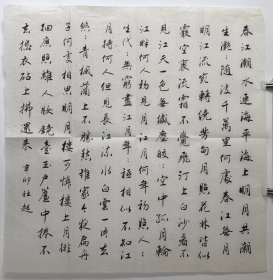 春江潮水連海平海上明月共潮
生灩〻隨波千萬里何處春江無月
明江流宛轉繞芳甸月照花林皆似
霰空裏流霜不覺飛汀上白沙看不
見江天一色無纖塵皎〻空中孤月輪
江畔何人初見月江月何年初照人〻
生代〻無窮盡江月年〻祗相似不知江
月待何人但見長江送流水白雲一片去
悠〻青楓浦上不勝愁誰家今夜扁舟
子何處相思明月樓可憐樓上月徘
徊應照離人妝鏡臺玉戶簾中捲不
去擣衣砧上拂還來 辛卯